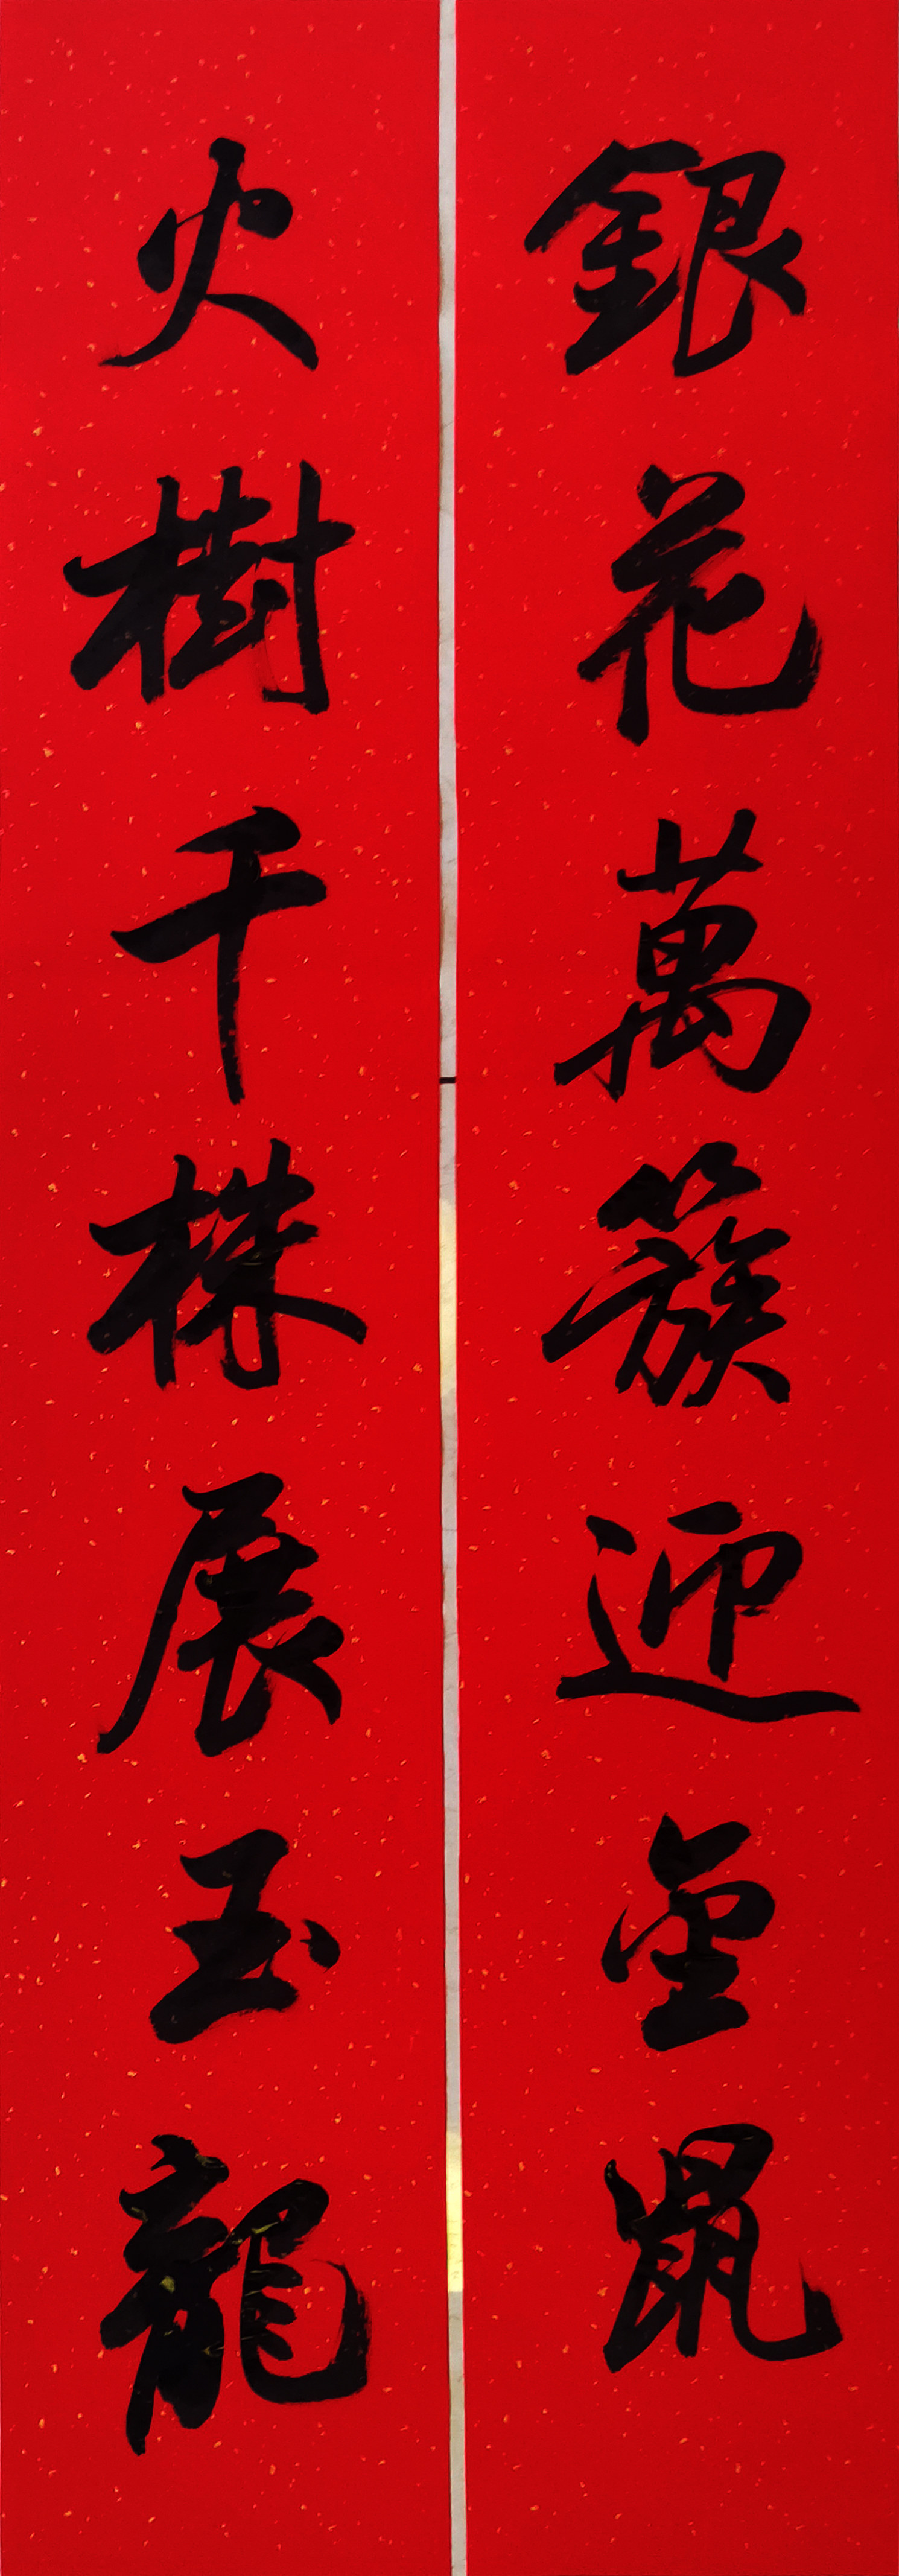 銀花萬簇迎金鼠
火樹千株展玉龍